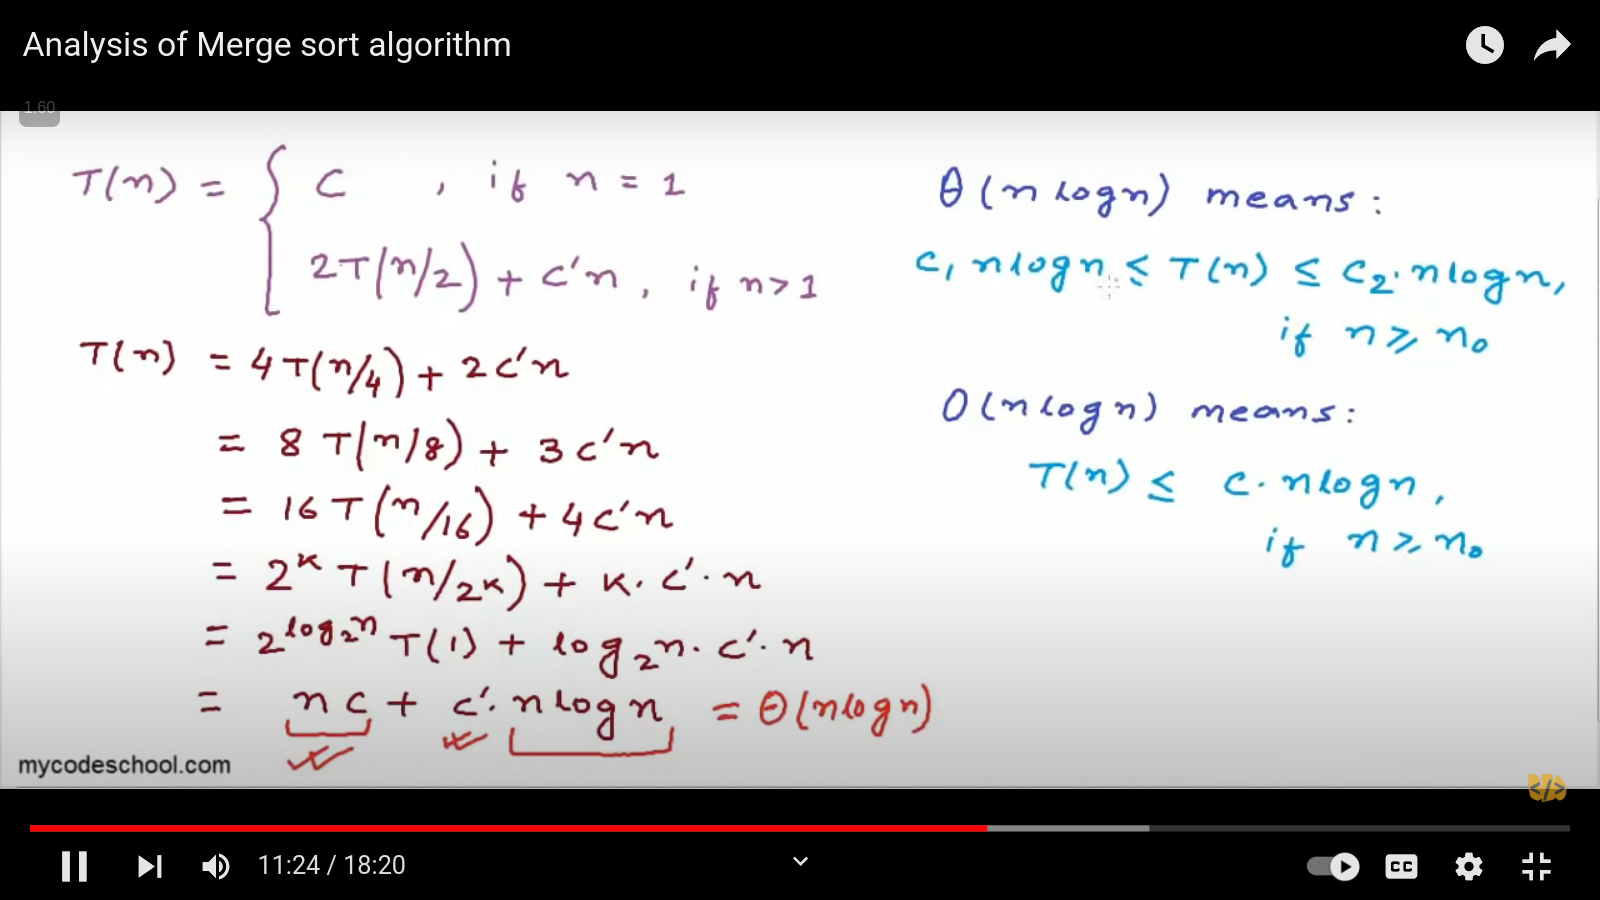 Analysis of Merge sort algorithm
1.60
T(n) = { C , if n = 1
2T(n/2) + C'n , if n > 1
T(n) = 4T(n/4) + 2C'n
= 8 T(n/8) + 3C'n
= 16 T(n/16) + 4C'n
= 2^K T(n/2^K) + K. C'. n
= 2^log₂n T(1) + log₂n. C'. n
= n C + C'. n log n = Θ(n log n)
Θ(n log n) means:
C₁ n log n ≤ T(n) ≤ C₂. n log n,
if n ≥ n₀
O(n log n) means:
T(n) ≤ C. n log n,
if n ≥ n₀
mycodeschool.com
</>
11:24 / 18:20
CC